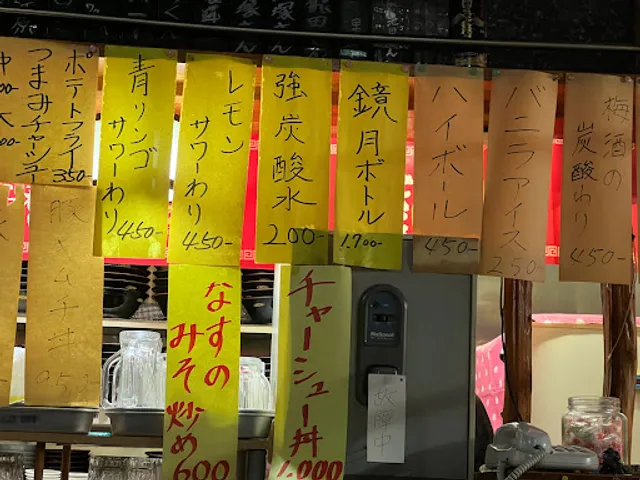 梅酒の
炭酸わり
450-
バニラアイス
250-
ハイボール
450-
鏡月ボトル
1.700-
強炭酸水
200-
レモン
サワーわり
450-
青リンゴ
サワーわり
450-
ポテトフライ
350-
つまみチャーシュー
チャーシュー丼
1.000
なすの
みそ炒め
600
豚キムチ丼
故障中
National